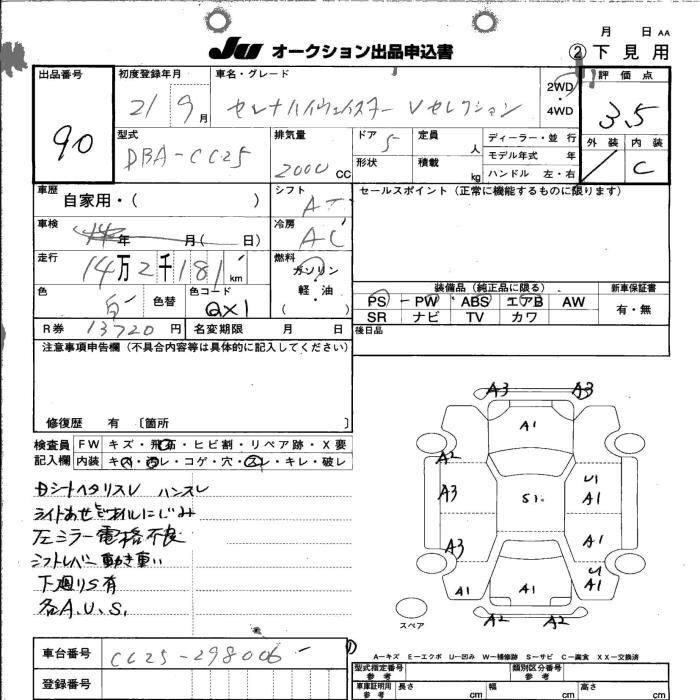 月 日 AA
JU オークション出品申込書 ②下見用
出品番号 90
初度登録年月 21 9月
車名・グレード セレナハイウェイスター Vセレクション
2WD・4WD
評価点 3.5
型式 DBA-CC25
排気量 2000cc
ドア 5
定員 人
形状
積載 kg
ディーラー・並行
モデル年式 年
ハンドル 左・右
外装 内装 C
車歴 自家用・( )
シフト AT
セールスポイント(正常に機能するものに限ります)
車検 年 月( 日)
冷房 AC
走行 14万2千181km
燃料 ガソリン・軽・油 ( )
色 白 色替 色コード QX1
装備品(純正品に限る) 新車保証書
PS PW ABS エアB AW 有・無
SR ナビ TV カワ
R券 13720円 名変期限 月 日
後日品
注意事項申告欄(不具合内容等は具体的に記入してください)
修復歴 有 〔箇所 〕
検査員記入欄
FW キズ・飛石・ヒビ割・リペア跡・X要
内装 キズ・汚レ・コゲ・穴・スレ・キレ・破レ
Dシートヘタリスレ ハンスレ
ライトあせ オイルにじみ
左ミラー電格不良
シフトレバー動き重い
下廻りS有
各A.U.S.
A3 A3
A1
A2
A3 S1 U1 A1
A3 A1
A1 A1 U1 A1
A2 A2
スペア
A−キズ E−エクボ U−凹み W−補修跡 S−サビ C−腐食 XX−交換済
車台番号 CC25-298006
登録番号
型式指定番号 参考 類別区分番号 参考
車庫証明用 参考 長さ cm 幅 cm 高さ cm